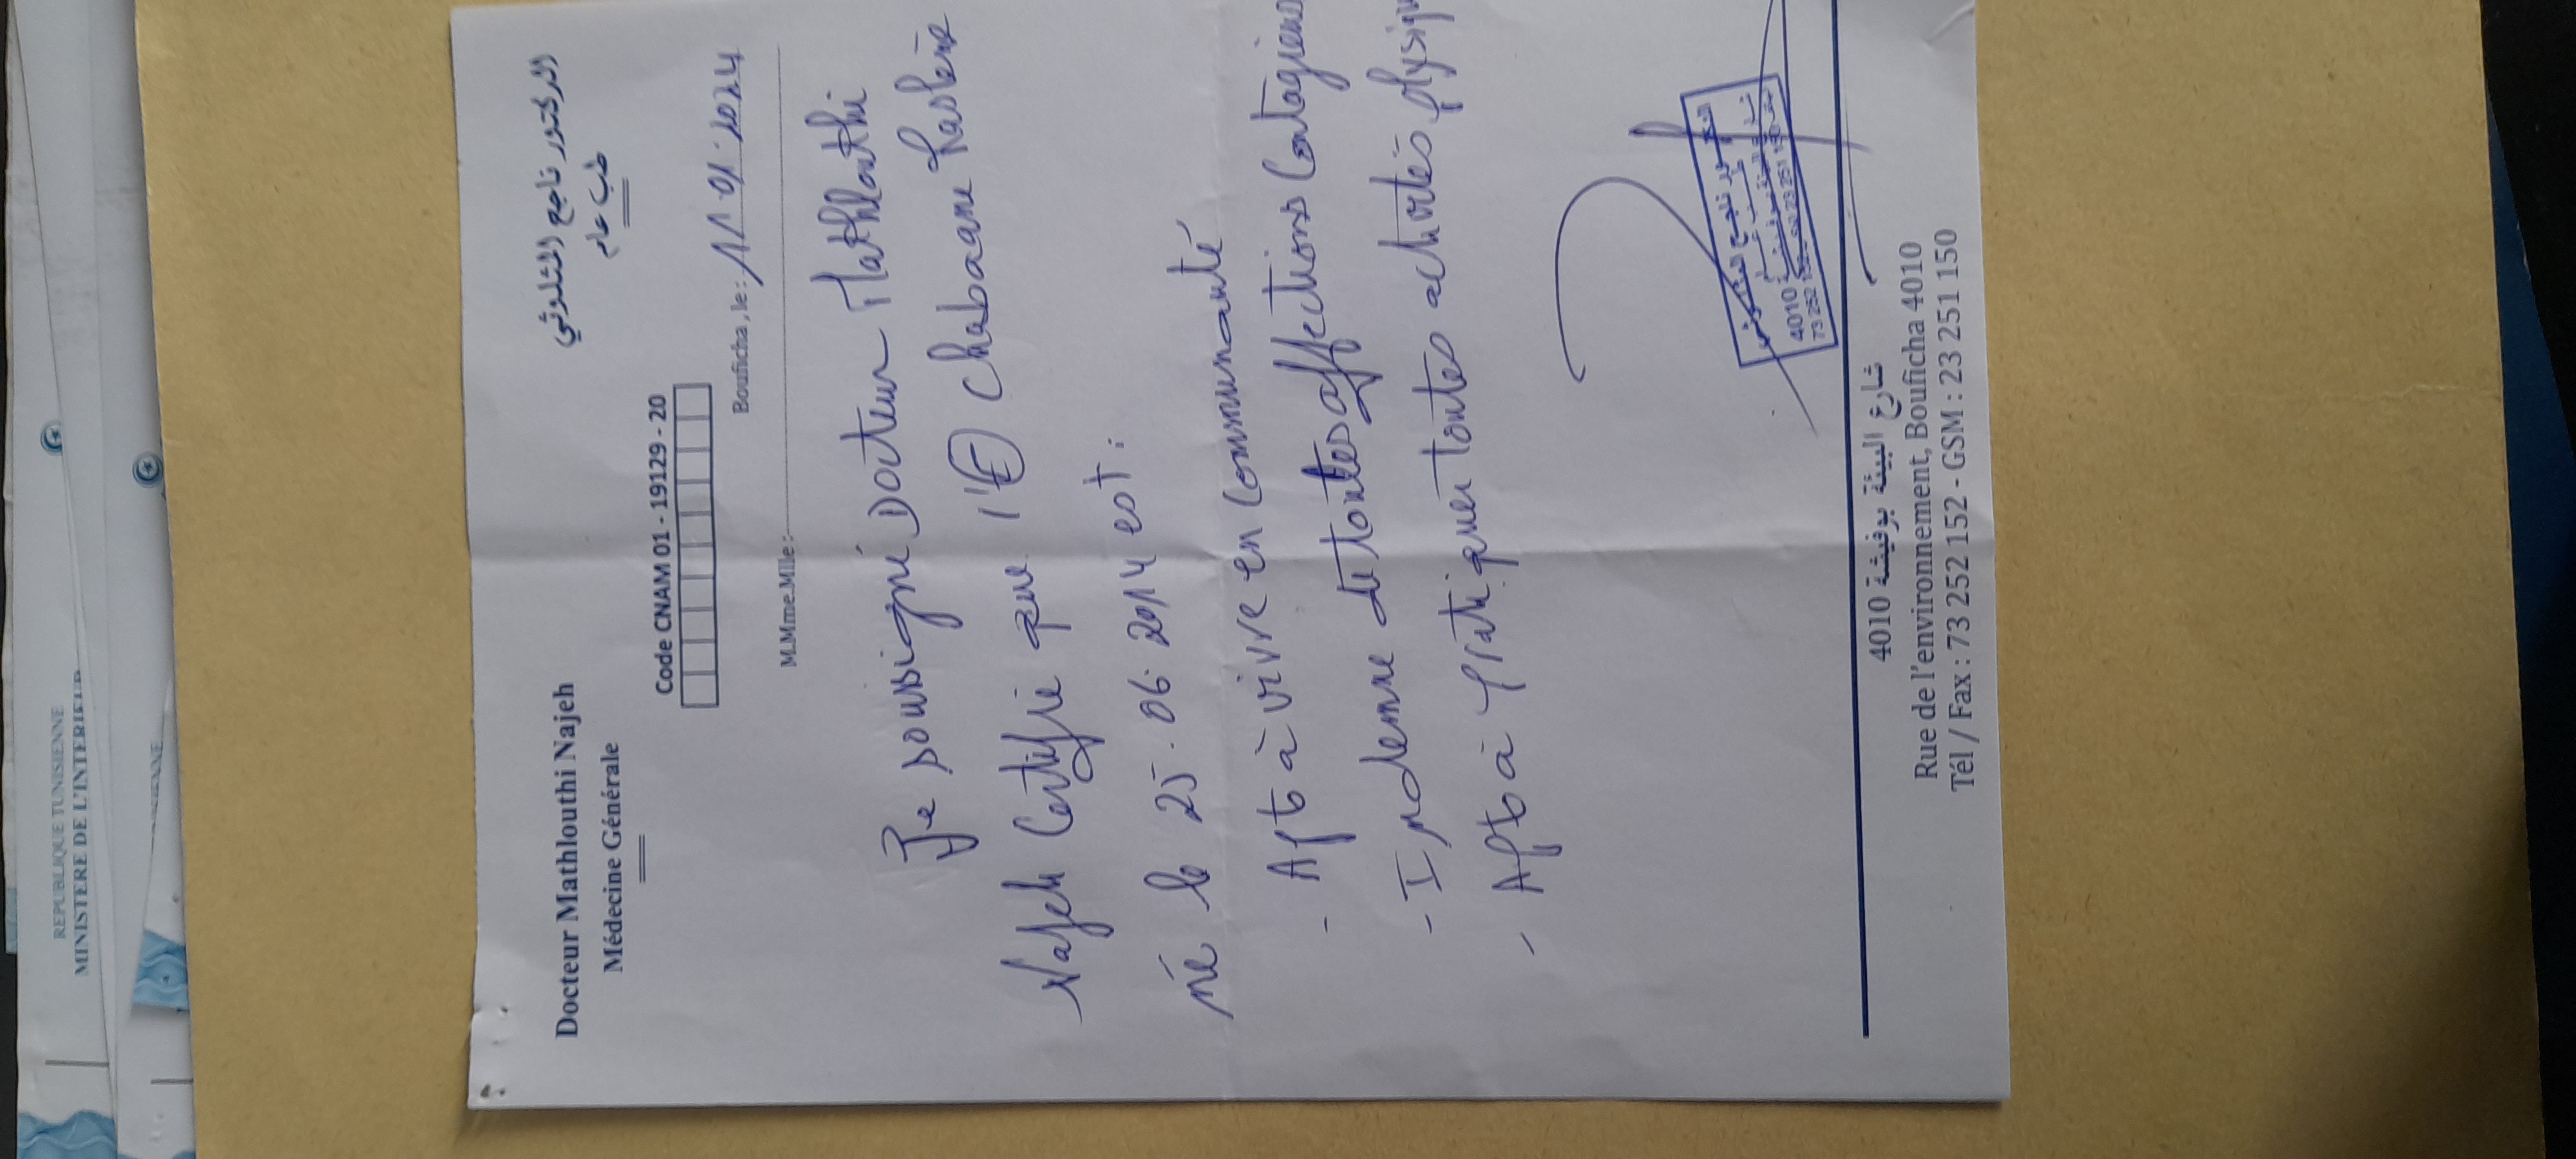 REPUBLIQUE TUNISIENNE
MINISTERE DE L'INTERIEUR
Docteur Mathlouthi Najeh
Médecine Générale
الدكتور ناجح المثلوثي
طب عام
Code CNAM 01 - 19129 - 20
Bouficha, le : 11.01.2024
M.Mme.Mlle :
Je soussigné Docteur Mathlouthi
Najeh Certifie que l'E Chabaane
né le 25.06.2014 est :
- Apte à vivre en Communauté
- Indemne de toutes affections Contagieuses
- Apte à pratiquer toutes activités physiqu
4010
شارع البيئة بوفيشة 4010
Rue de l'environnement, Bouficha 4010
Tél / Fax : 73 252 152 - GSM : 23 251 150